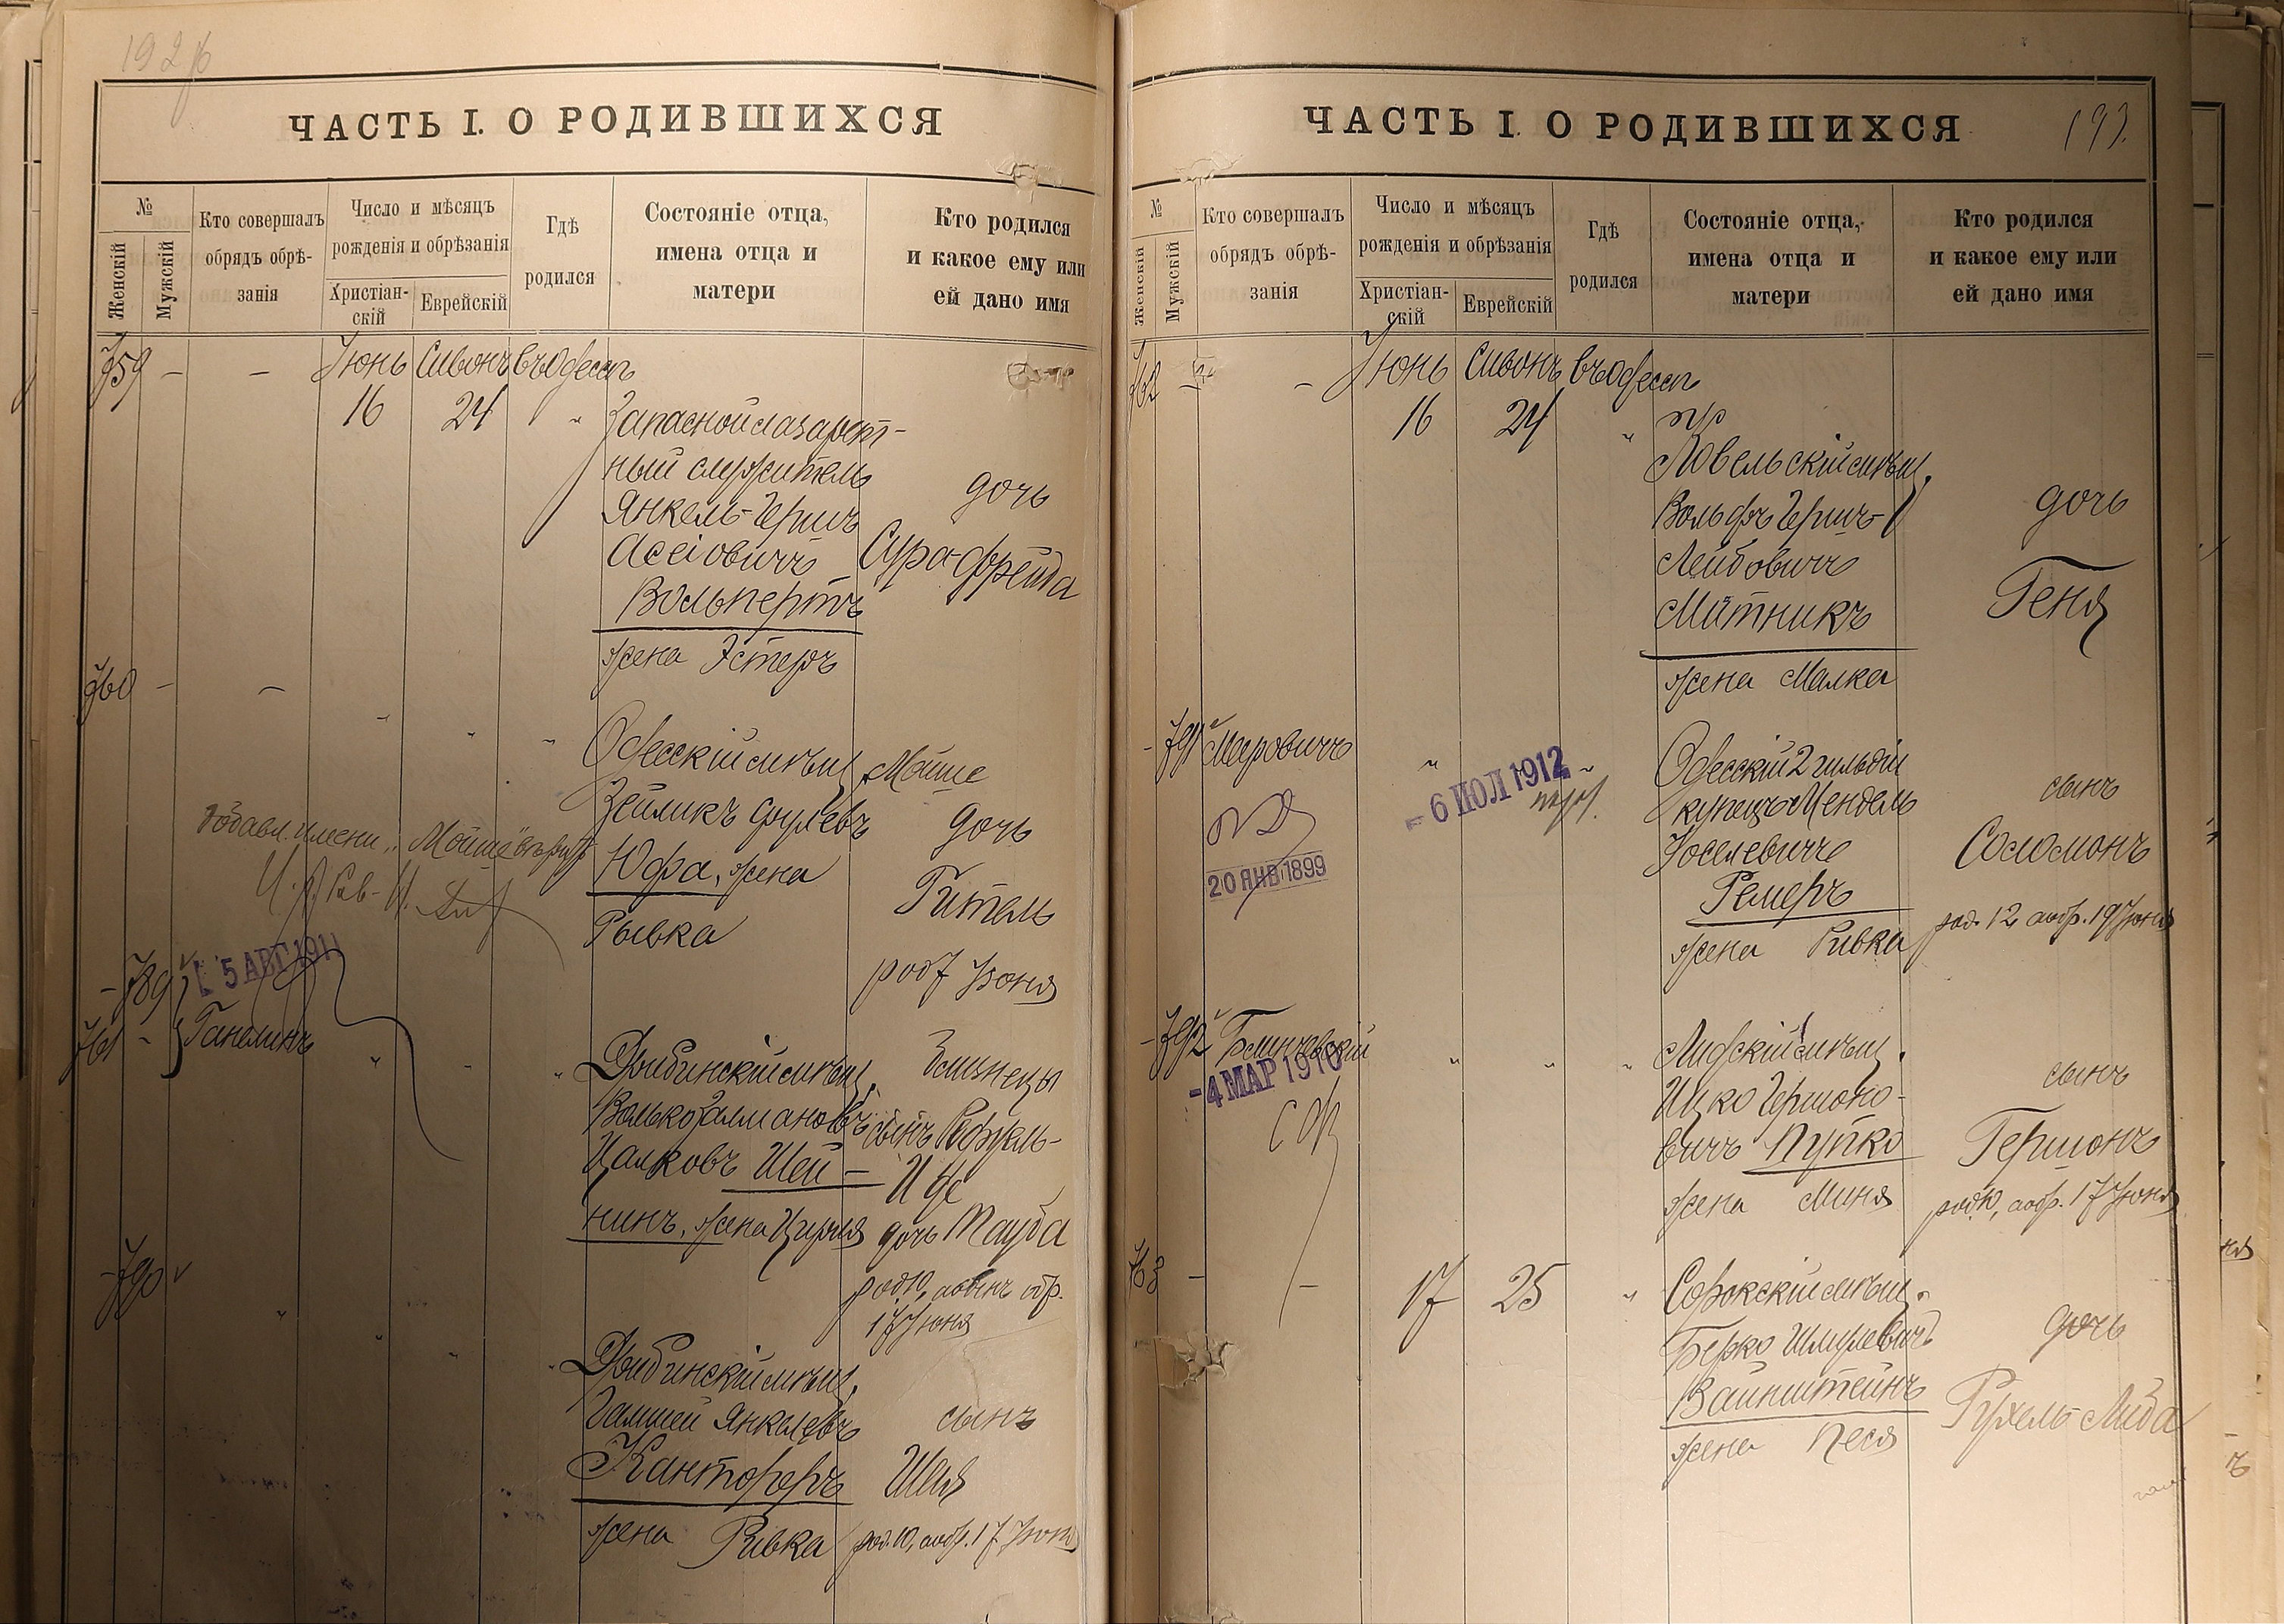 ЧАСТЬ I. О РОДИВШИХСЯ
№
Женскій
Мужскій
Кто совершалъ
обрядъ обрѣ-
занія
Число и мѣсяцъ
рожденія и обрѣзанія
Христіан-
скій
Еврейскій
Гдѣ
родился
Состояніе отца,
имена отца и
матери
Кто родился
и какое ему или
ей дано имя
759 - - Іюнь Сивонъ въ Одессѣ
16 24 "
Запасной лазарет-
ный служитель
Янкель-Гершъ
Вольпертъ
жена Эстеръ
дочь
Сура-Фрейда
760 - -
Одесскій мѣщ.
Зейликъ
Юфа, жена
Рывка
Мойше
дочь
Гитель
род 7 Іюня
5 АВГ 1911
- 789
761 -
Ганелинъ
Дрибинскій мѣщ.
Волько Залмановъ
Цалковъ Шей-
нинъ, жена Цирля
близнецы
сынъ
дочь Тауба
17 Іюня
- 790
Дрибинскій мѣщ.
Янкелевъ
Канторъ
жена Ривка
сынъ
Шая
род. 10, а обр. 17 Іюня
ЧАСТЬ I. О РОДИВШИХСЯ
193.
№
Женскій
Мужскій
Кто совершалъ
обрядъ обрѣ-
занія
Число и мѣсяцъ
рожденія и обрѣзанія
Христіан-
скій
Еврейскій
Гдѣ
родился
Состояніе отца,
имена отца и
матери
Кто родился
и какое ему или
ей дано имя
762 - - Іюнь Сивонъ въ Одессѣ
16 24 "
мѣщ.
Вольфъ Гершъ-
Лейбовичъ
Мѣтникъ
жена Малка
дочь
Геня
- 791 Меровичъ
- 6 ИЮЛ 1912
20 ЯНВ 1899
Одесскій 2 гильдіи
купецъ Мендель
Іоселевичъ
Ремеръ
жена Ривка
сынъ
Соломонъ
род. 12, а обр. 19 Іюня
- 792
- 4 МАР 1910
Лидскій мѣщ.
Ицко Гершоно-
вичъ Пупко
жена Миня
сынъ
Гершонъ
род. 10, а обр. 17 Іюня
763 - - 17 25 "
Сорокскій мѣщ.
Берко Шмулевичъ
Вайнштейнъ
жена Песя
дочь
Рухель-Люба